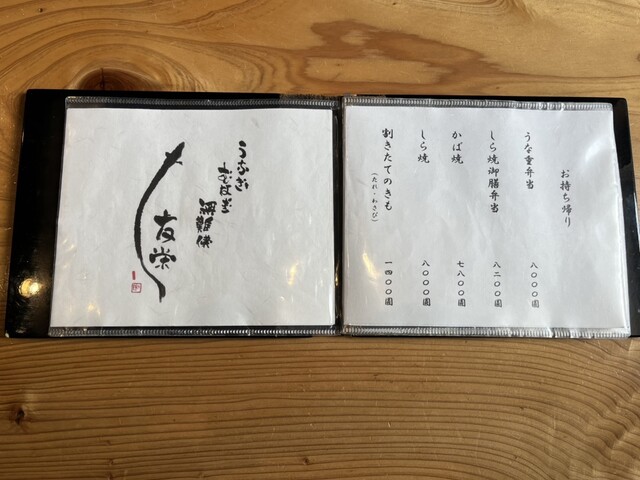 お持ち帰り
うな重弁当 八〇〇〇圓
しら焼御膳弁当 八二〇〇圓
かば焼 七八〇〇圓
しら焼 八〇〇〇圓
割きたてのきも(たれ・わさび) 一四〇〇圓
うなぎ
友栄